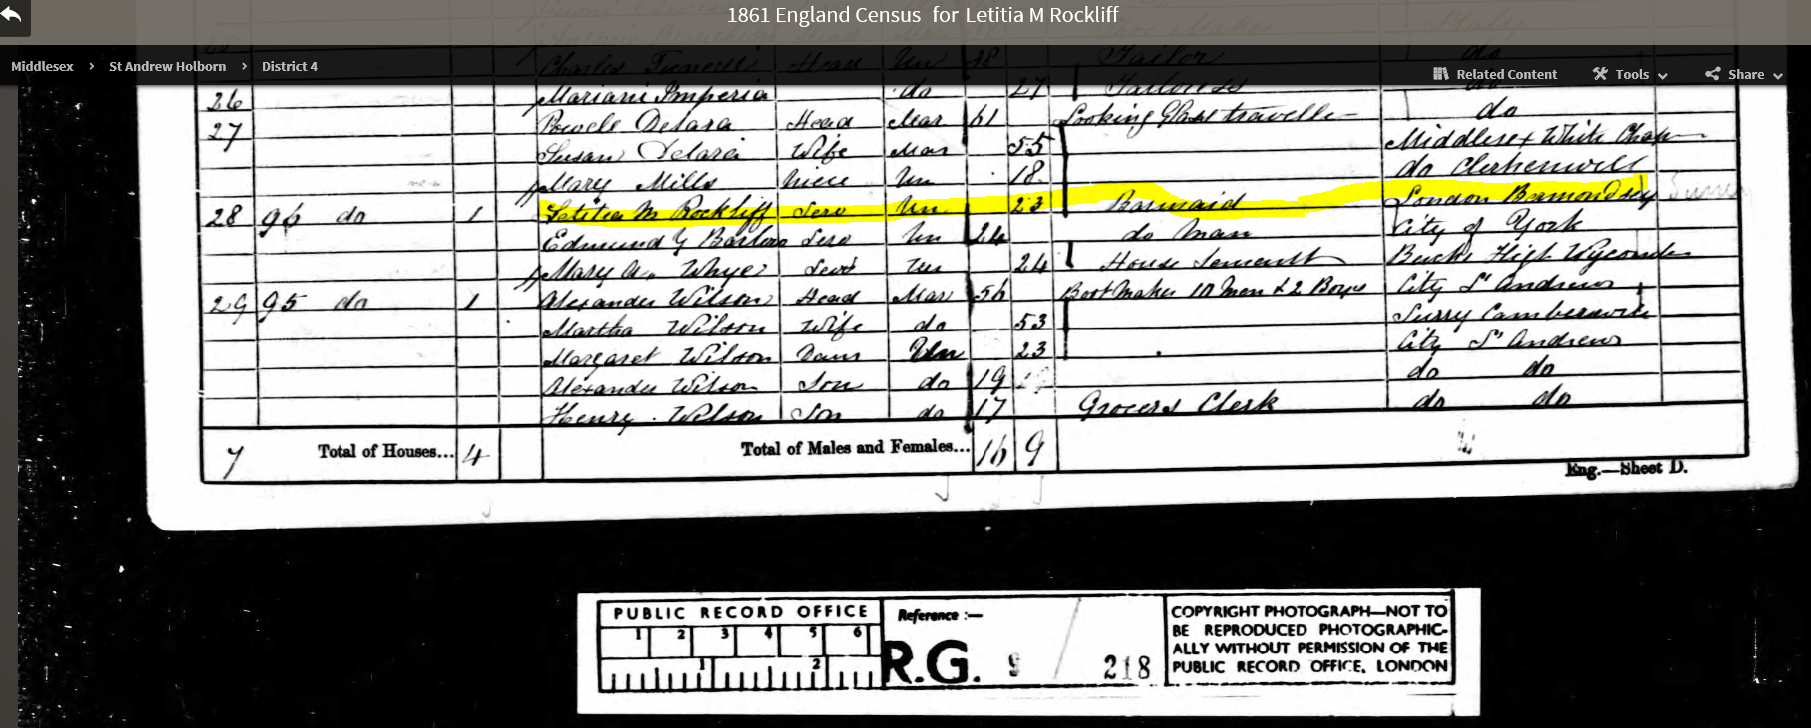 1861 England Census for Letitia M Rockliff
Middlesex > St Andrew Holborn > District 4
Related Content Tools Share
Charles Head Un 38 Tailor do
26 Mariani Imperia do 27 Tailoress
27 Powele Delara Head Mar 61 Looking Glass travelle do
Susan Delara Wife Mar 55 Middlesex White Chap
Mary Mills Niece Un 18 do Clerkenwell
28 96 do 1 Letitia M Rockliff Serv Un 23 Barmaid London Bermondsey
Edmund G Barlow Serv Un 24 do Man City of York
Mary A. Whye Servt Un 24 House Servant Bucks High Wycombe
29 95 do 1 Alexander Wilson Head Mar 56 Bootmaker 10 Men & 2 Boys City St Andrews
Martha Wilson Wife do 53 Surry Camberwell
Margaret Wilson Daur Un 23 City St Andrews
Alexander Wilson Son do 19 do do
Henry Wilson Son do 17 Grocers Clerk do do
7 Total of Houses... 4 Total of Males and Females... 16 9
Eng.—Sheet D.
PUBLIC RECORD OFFICE
1 2 3 4 5 6
1 2
Reference :—
R.G. 9 / 218
COPYRIGHT PHOTOGRAPH—NOT TO
BE REPRODUCED PHOTOGRAPHIC-
ALLY WITHOUT PERMISSION OF THE
PUBLIC RECORD OFFICE, LONDON